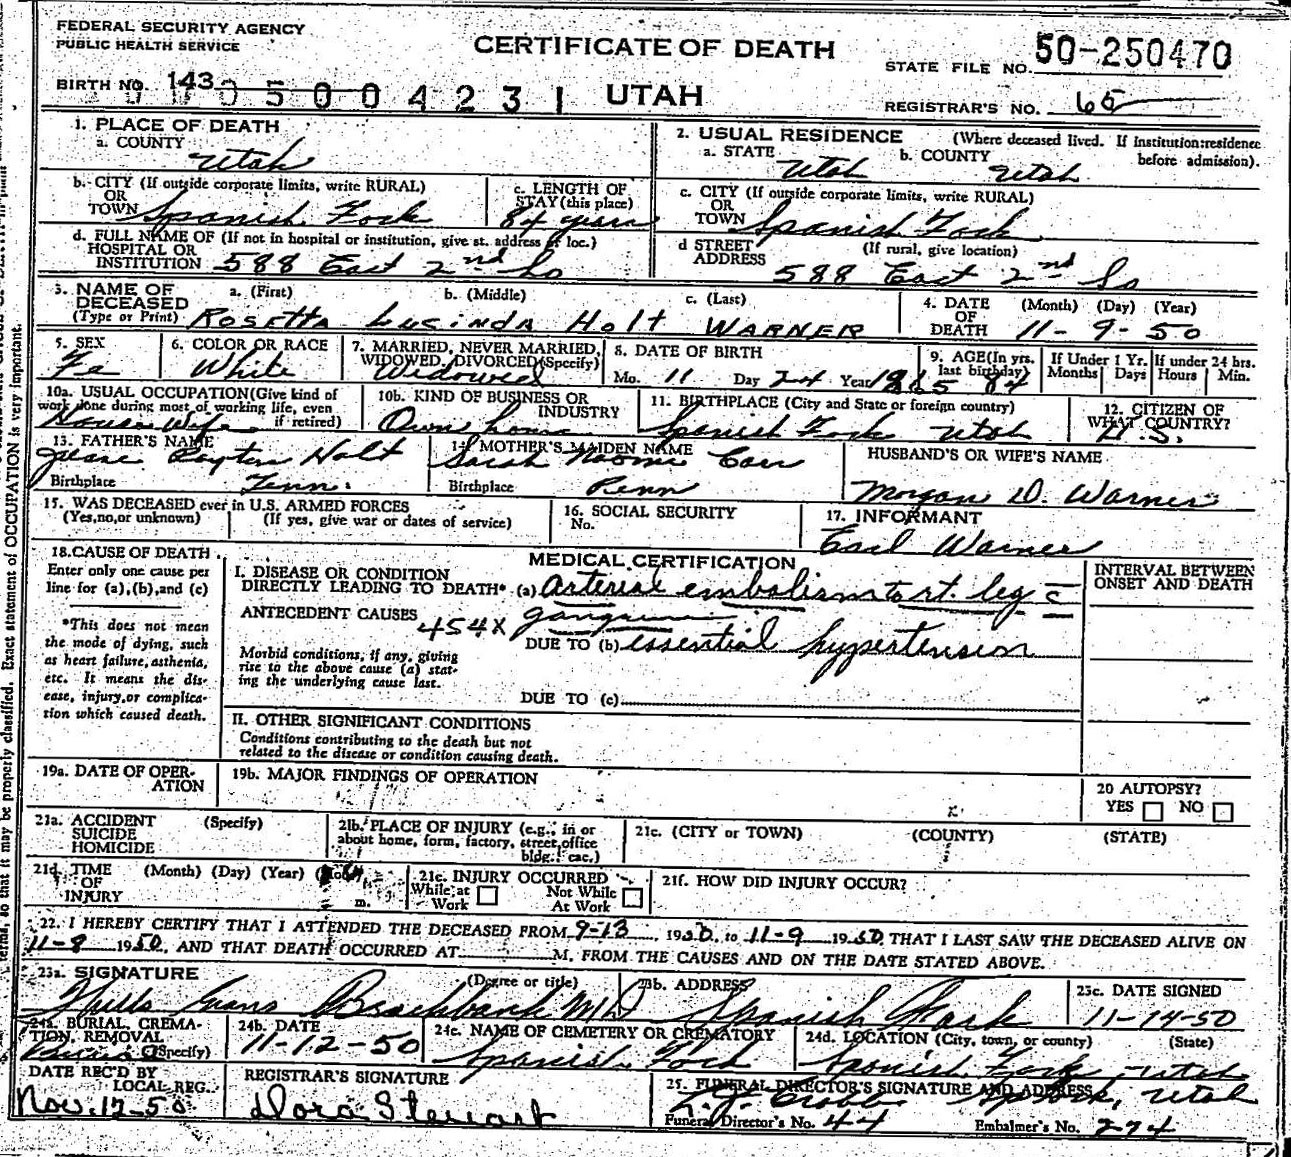 FEDERAL SECURITY AGENCY
PUBLIC HEALTH SERVICE
CERTIFICATE OF DEATH
STATE FILE NO. 50-250470
BIRTH NO. 143
0500423 UTAH
REGISTRAR'S NO. 65
1. PLACE OF DEATH
a. COUNTY
Utah
2. USUAL RESIDENCE (Where deceased lived. If institution:residence before admission).
a. STATE Utah b. COUNTY Utah
b. CITY (If outside corporate limits, write RURAL)
OR
TOWN Spanish Fork
c. LENGTH OF
STAY (this place)
84 years
c. CITY (If outside corporate limits, write RURAL)
OR
TOWN Spanish Fork
d. FULL NAME OF (If not in hospital or institution, give st. address or loc.)
HOSPITAL OR
INSTITUTION 588 East 2nd So
d STREET (If rural, give location)
ADDRESS
588 East 2nd So
3. NAME OF a. (First) b. (Middle) c. (Last)
DECEASED
(Type or Print) ROSETTA LUCINDA HOLT WARNER
4. DATE (Month) (Day) (Year)
OF
DEATH 11-9-50
5. SEX
Fe
6. COLOR OR RACE
White
7. MARRIED, NEVER MARRIED,
WIDOWED, DIVORCED(Specify)
Widowed
8. DATE OF BIRTH
Mo. 11 Day 24 Year 1865
9. AGE(In yrs.
last birthday)
84
If Under 1 Yr.
Months Days
If under 24 hrs.
Hours Min.
10a. USUAL OCCUPATION(Give kind of
work done during most of working life, even
if retired)
House Wife
10b. KIND OF BUSINESS OR
INDUSTRY
Own home
11. BIRTHPLACE (City and State or foreign country)
Spanish Fork Utah
12. CITIZEN OF
WHAT COUNTRY?
U.S.
13. FATHER'S NAME
Holt
Birthplace Tenn.
14. MOTHER'S MAIDEN NAME
Sarah Naomi Carr
Birthplace Penn
HUSBAND'S OR WIFE'S NAME
Morgan D. Warner
15. WAS DECEASED ever in U.S. ARMED FORCES
(Yes,no,or unknown) (If yes, give war or dates of service)
16. SOCIAL SECURITY
No.
17. INFORMANT
Earl Warner
18.CAUSE OF DEATH
Enter only one cause per
line for (a),(b),and (c)
*This does not mean
the mode of dying, such
as heart failure, asthenia,
etc. It means the dis-
ease, injury,or complica-
tion which caused death.
MEDICAL CERTIFICATION
I. DISEASE OR CONDITION
DIRECTLY LEADING TO DEATH* (a) arterial embolism to rt. leg c̄
ANTECEDENT CAUSES 454X gangrene
DUE TO (b) essential hypertension
Morbid conditions, if any, giving
rise to the above cause (a) stat-
ing the underlying cause last.
DUE TO (c)
INTERVAL BETWEEN
ONSET AND DEATH
II. OTHER SIGNIFICANT CONDITIONS
Conditions contributing to the death but not
related to the disease or condition causing death.
19a. DATE OF OPER-
ATION
19b. MAJOR FINDINGS OF OPERATION
20 AUTOPSY?
YES NO
21a. ACCIDENT (Specify)
SUICIDE
HOMICIDE
21b. PLACE OF INJURY (e.g., in or
about home, form, factory, street,office
bldg. cac.)
21c. (CITY or TOWN) (COUNTY) (STATE)
21d. TIME (Month) (Day) (Year)
OF
INJURY m.
21e. INJURY OCCURRED
While at Work
Not While At Work
21f. HOW DID INJURY OCCUR?
22. I HEREBY CERTIFY THAT I ATTENDED THE DECEASED FROM 9-13 1950, to 11-9 1950, THAT I LAST SAW THE DECEASED ALIVE ON
11-8 1950, AND THAT DEATH OCCURRED AT M. FROM THE CAUSES AND ON THE DATE STATED ABOVE.
23a. SIGNATURE (Degree or title)
Wells Evans Brockbank MD
23b. ADDRESS
Spanish Fork
23c. DATE SIGNED
11-14-50
24a. BURIAL, CREMA-
TION, REMOVAL
(Specify)
Burial
24b. DATE
11-12-50
24c. NAME OF CEMETERY OR CREMATORY
Spanish Fork
24d. LOCATION (City, town, or county) (State)
Spanish Fork Utah
DATE REC'D BY
LOCAL REG.
Nov. 12-50
REGISTRAR'S SIGNATURE
Dora Stewart
25. FUNERAL DIRECTOR'S SIGNATURE AND ADDRESS
Sp Fork, Utah
Funeral Director's No. 44 Embalmer's No. 274
terms, so that it may be properly classified. Exact statement of OCCUPATION is very important.